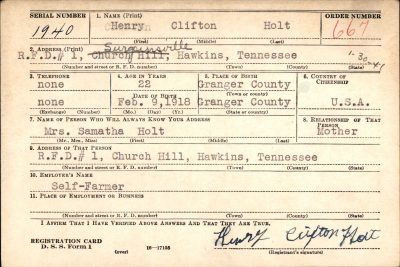 SERIAL NUMBER 1. NAME (Print) ORDER NUMBER
1940 Henry Clifton Holt 667
(First) (Middle) (Last)
2. ADDRESS (Print) Surgoinsville
R.F.D.# 1, Church Hill, Hawkins, Tennessee 1-30-41
(Number and street or R. F. D. number) (Town) (County) (State)
3. TELEPHONE 4. AGE IN YEARS 5. PLACE OF BIRTH 6. COUNTRY OF CITIZENSHIP
none 22 Granger County
DATE OF BIRTH (Town or county)
none Feb. 9,1918 Granger County U.S.A.
(Exchange) (Number) (Mo.) (Day) (Yr.) (State or country)
7. NAME OF PERSON WHO WILL ALWAYS KNOW YOUR ADDRESS 8. RELATIONSHIP OF THAT PERSON
Mrs. Samatha Holt Mother
(Mr., Mrs., Miss) (First) (Middle) (Last)
9. ADDRESS OF THAT PERSON
R.F.D.# 1, Church Hill, Hawkins, Tennessee
(Number and street or R. F. D. number) (Town) (County) (State)
10. EMPLOYER'S NAME
Self-Farmer
11. PLACE OF EMPLOYMENT OR BUSINESS
(Number and street or R. F. D. number) (Town) (County) (State)
I AFFIRM THAT I HAVE VERIFIED ABOVE ANSWERS AND THAT THEY ARE TRUE.
REGISTRATION CARD
D. S. S. Form 1 (over) 16—17105 Henry Clifton Holt
(Registrant's signature)